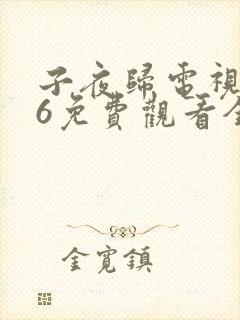 子夜歸電視
6免費觀看全
金寬鎮